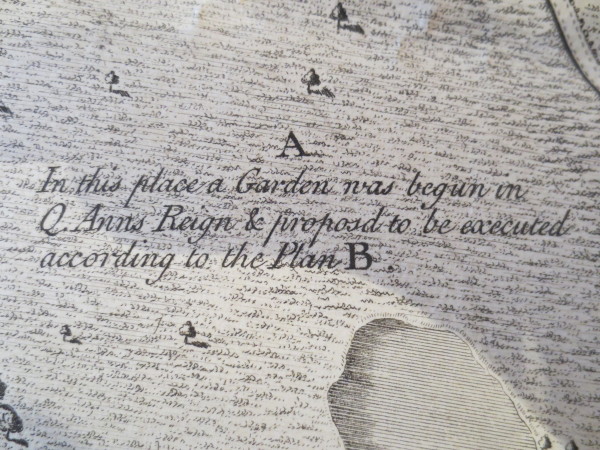 A
In this place a Garden was begun in
Q. Anns Reign & proposd to be executed
according to the Plan B.